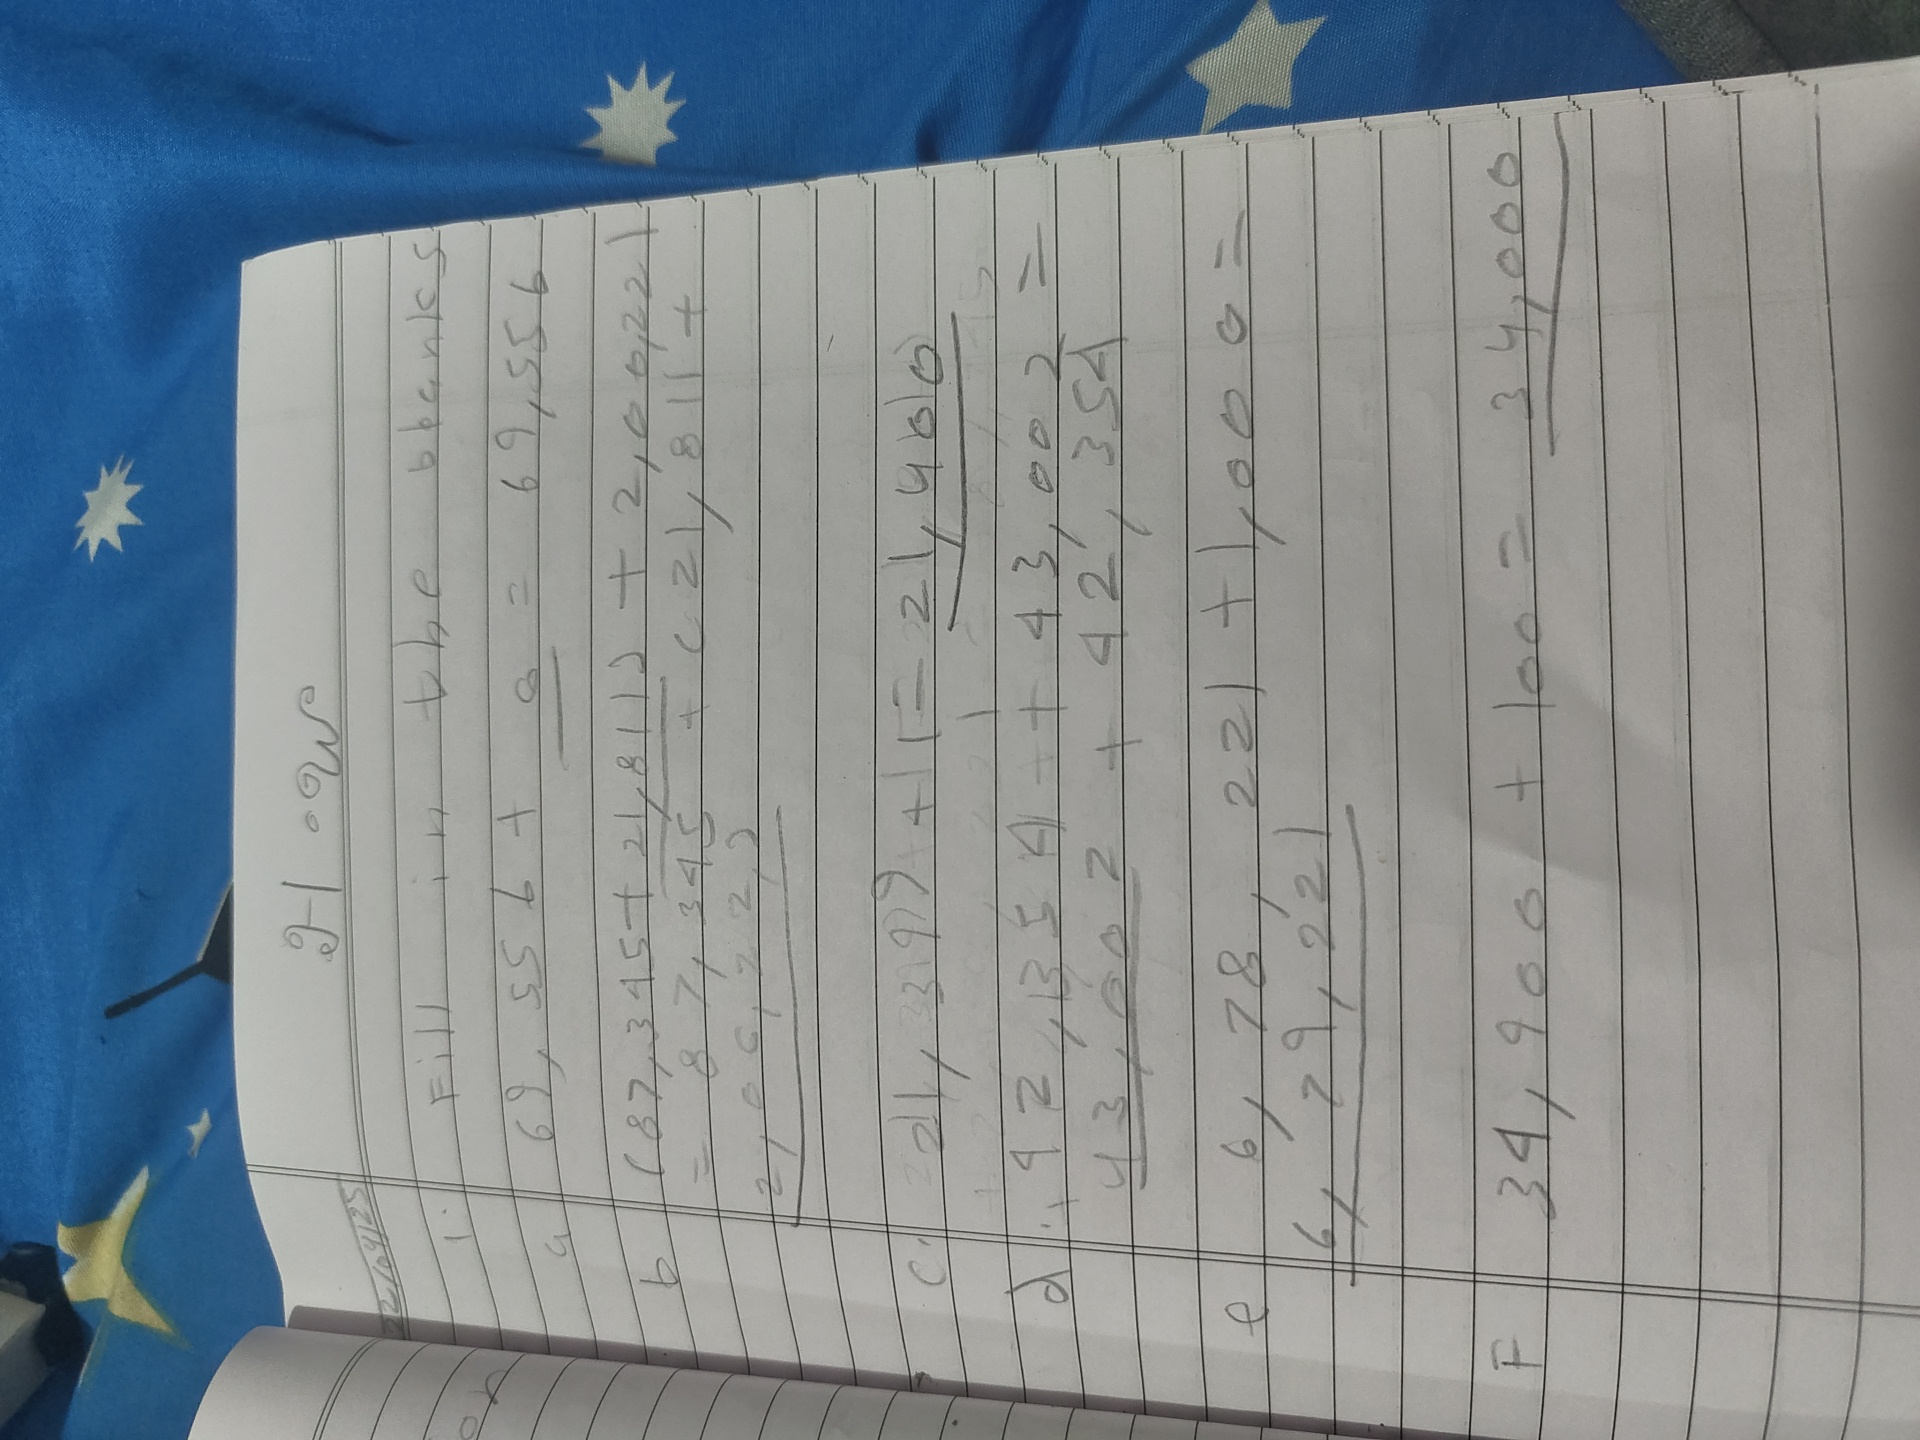 H·W
22/04/25
1. Fill in the bbanks
a 69,556 + 0 = 69,556
b (87,345 + 21,811) + 2,00,221
= 87,345 + (21,811 +
c. 21,399 + 1 = 21,400
d 42,354 + 43,002 =
43,002 + 42,354
e 6,78,221 + 1,000 =
6,79,221
F 34,900 + 100 = 34,000